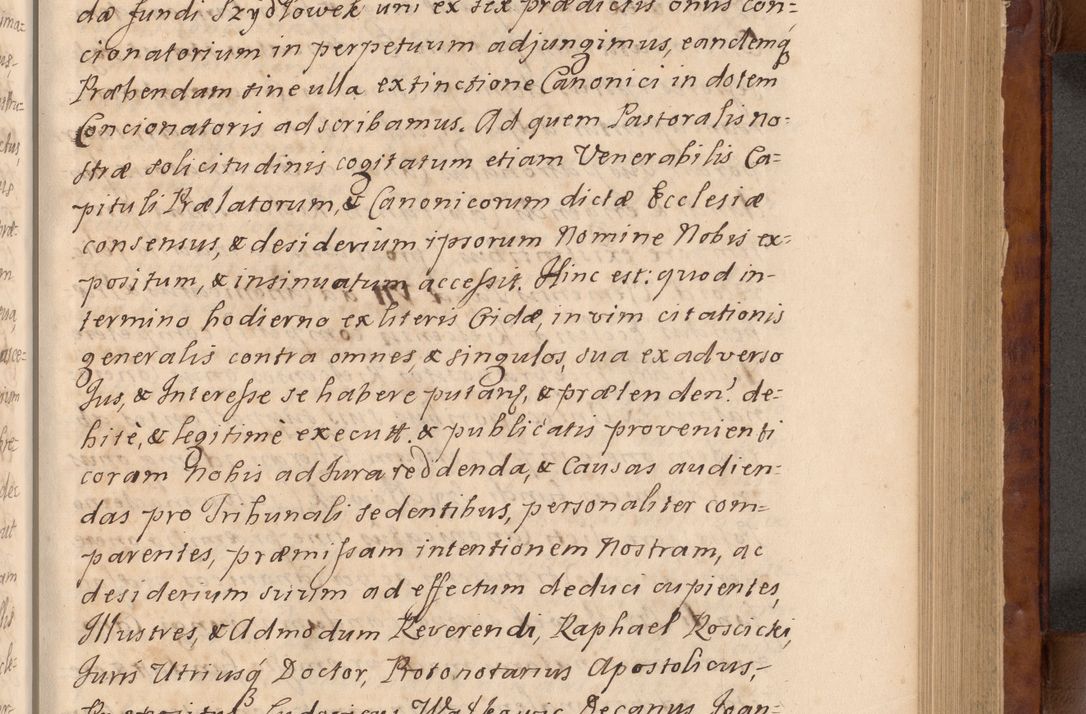 dæ fundi Szydłowek uni ex sex prædictis onus con=
cionatorium in perpetuum adjungimus, eandemq́
Præbendam sine ulla extinctione Canonici in dotem
Concionatoris adscribamus. Ad quem Pastoralis no=
stræ solicitudinis cogitatum etiam Venerabilis Ca=
pituli Prælatorum, & Canonicorum dictæ Ecclesiæ
consensus, & desiderium ipsorum Nomine Nobis ex=
positum, & insinuatum accessit. Hinc est: quod in-
termino hodierno ex literis Cridæ, in vim citationis
generalis contra omnes, & singulos, sua ex adverso
Jus, & Interesse se habere putanṯ, & prætenden? de=
bitè, & legitimè executt. & publicatis provenienti
coram Nobis ad Jura reddenda, & Causas audien=
das pro Tribunali sedentibus, personaliter com=
parentes, præmissam intentionem Nostram, ac
desiderium suum ad effectum deduci cupientes,
Illustres, & Admodum Reverendi, Raphael Roscicki,
Juris Utriusq́ Doctor, Protonotarius Apostolicus,-
Præpositus, Ludovicus Decanus Joan-